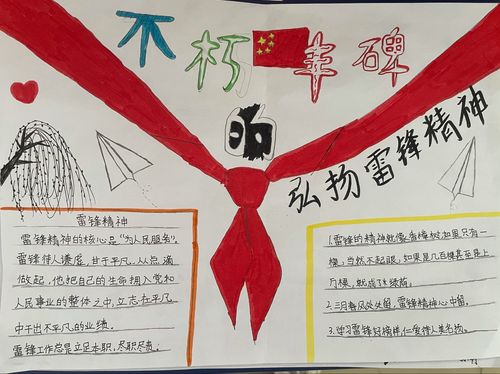 不朽的丰碑
弘扬雷锋精神
雷锋精神
雷锋精神的核心是“为人民服务”,
雷锋待人谦虚,甘于平凡,从点滴
做起,他把自己的生命拥入党和
人民事业的整体之中,立志在平凡
中干出不平凡的业绩。
雷锋工作总是立足本职,尽职尽责;
1.雷锋的精神就像香樟树,如果只有一
棵,当然不起眼,如果是几百棵甚至是上
万棵,就成了绿荫。
2.三月春风处处留,雷锋精神心中留。
3.学习雷锋好榜样,仁爱待人美名扬。